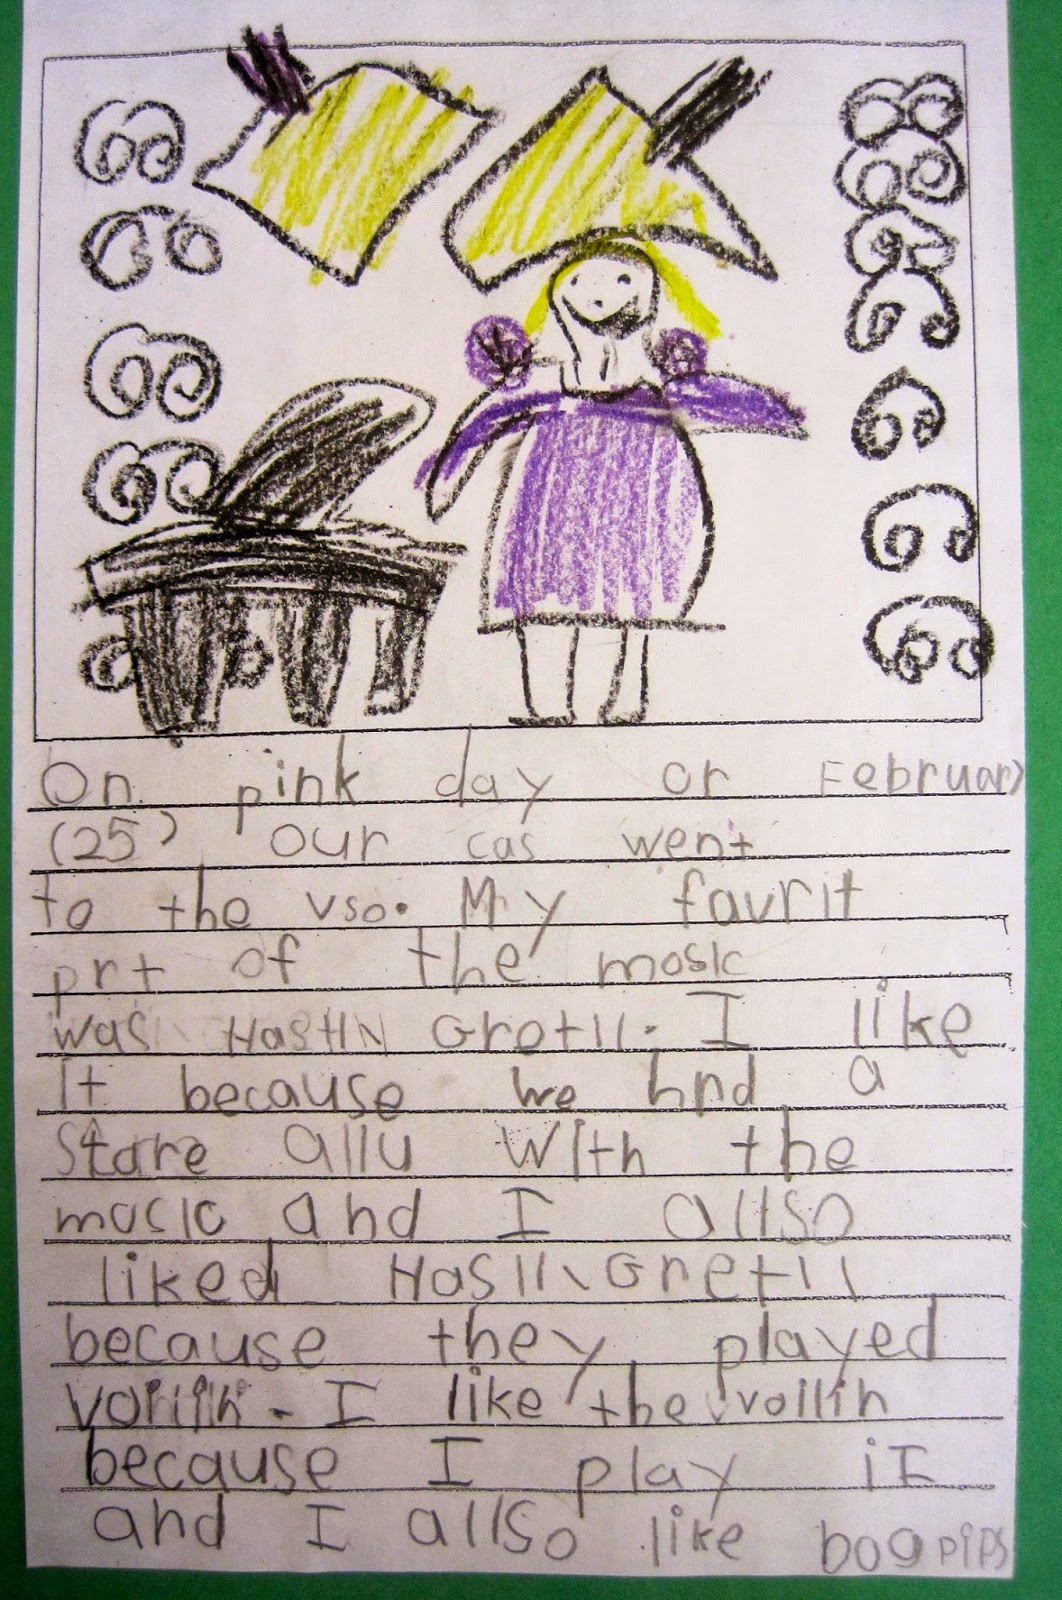 On pink day or February
(25) our cas went
to the vso. My favrit
prt of the mosic
was Hastin Gretll. I like
it because we hnd a
store allu with the
mosic and I allso
liked Hasll Gretll
because they played
voriin. I like the vollin
because I play it
and I allso like bogpips